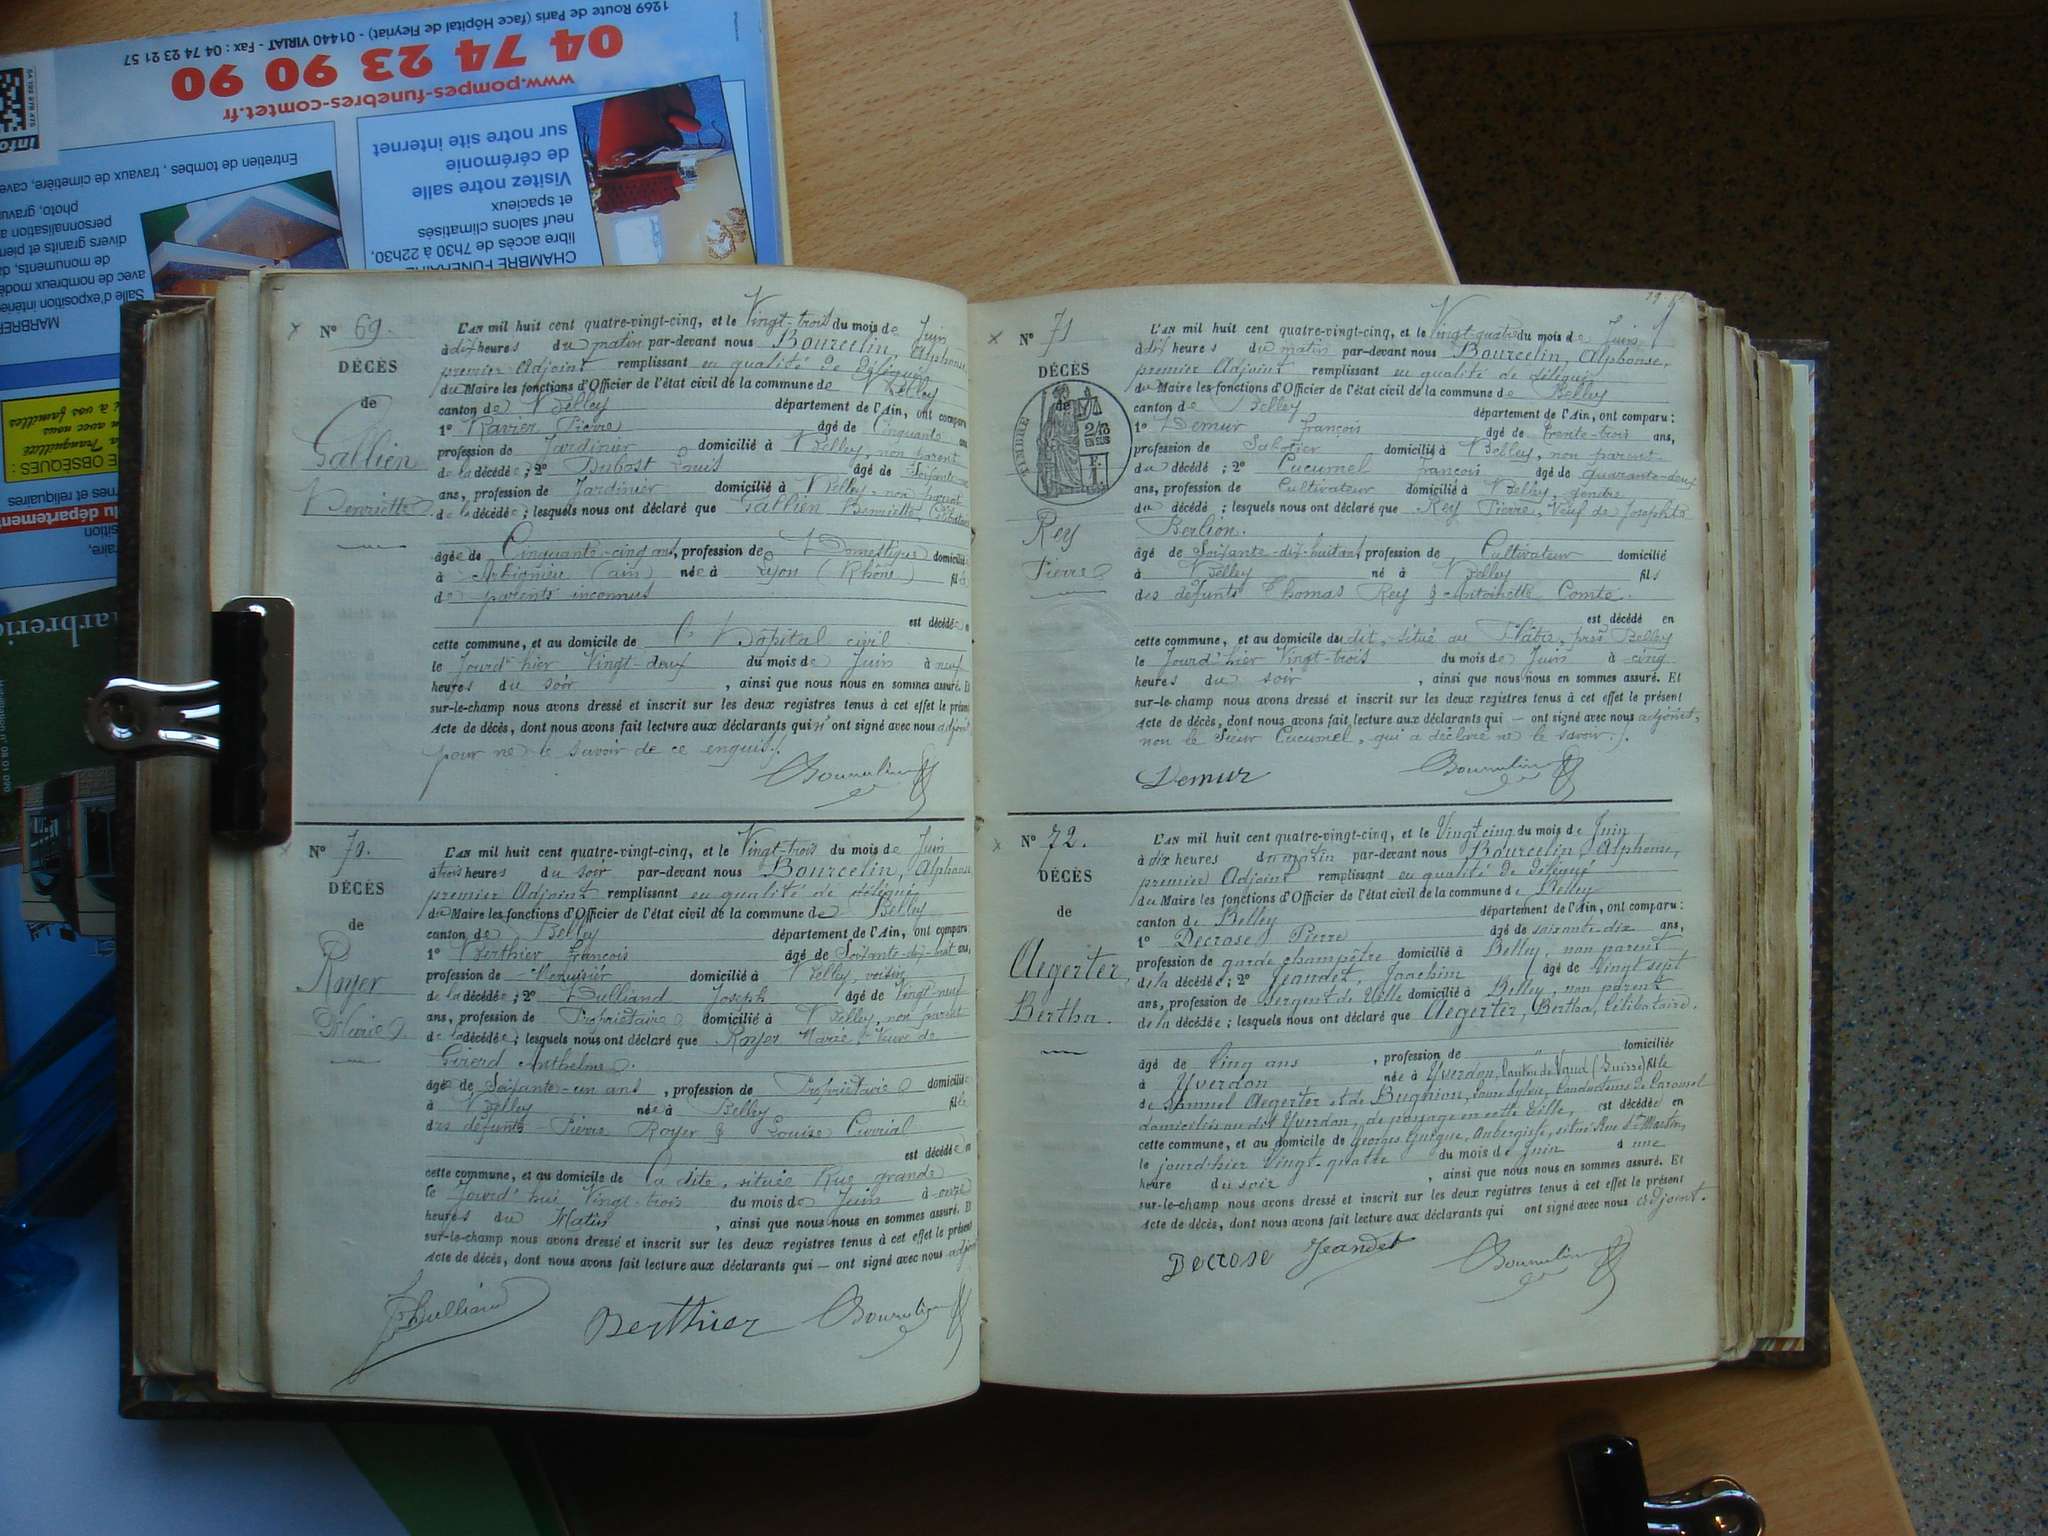 1269 Route de Paris (face Hôpital de Fleyriat) - 01440 VIRIAT - Fax : 04 74 23 21 57
04 74 23 90 90
www.pompes-funebres-comtet.fr
Visitez notre salle
de cérémonie
sur notre site internet
CHAMBRE FUNERAIRE
libre accès de 7h30 à 22h30,
neuf salons climatisés
et spacieux
Entretien de tombes, travaux de cimetière, cave
MARBRER
Salle d'exposition intérie
avec de nombreux modè
de monuments, da
divers granits et pier
personnalisation a
photo, gravu
E OBSÈQUES :
Tranquillité
n avec nous
à vos familles
rnes et reliquaires
du département
N° 69.
DÉCÈS
de
Gallien
Henriette
L'AN mil huit cent quatre-vingt-cinq, et le Vingt-trois du mois de Juin
à dix heures du matin par-devant nous Bourcelin, Alphonse,
premier Adjoint remplissant en qualité de délégué
du Maire les fonctions d'Officier de l'état civil de la commune de Belley
canton de Belley département de l'Ain, ont comparu
1° Ravier Pierre âgé de Cinquante ans
profession de Jardinier domicilié à Belley, non parent
de la décédée ; 2° Dubost Louis âgé de Soixante
ans, profession de Jardinier domicilié à Belley, non parent
de la décédée ; lesquels nous ont déclaré que Gallien Henriette, Célibataire
âgée de Cinquante-cinq ans, profession de Domestique domiciliée
à Arbignieu (ain) née à Lyon (Rhône) fille
de parents inconnus
est décédée en
cette commune, et au domicile de l'hôpital civil
le Jourd'hier Vingt-deux du mois de Juin à neuf
heures du soir , ainsi que nous nous en sommes assuré. Et
sur-le-champ nous avons dressé et inscrit sur les deux registres tenus à cet effet le présent
Acte de décès, dont nous avons fait lecture aux déclarants qui n'ont signé avec nous adjoint
pour ne le savoir de ce enquis.
Bourcelin
N° 70.
DÉCÈS
de
Royer
Marie
L'AN mil huit cent quatre-vingt-cinq, et le Vingt-trois du mois de Juin
à trois heures du soir par-devant nous Bourcelin, Alphonse
premier Adjoint remplissant en qualité de délégué
du Maire les fonctions d'Officier de l'état civil de la commune de Belley
canton de Belley département de l'Ain, ont comparu
1° Berthier François âgé de Soixante-dix-huit ans,
profession de Menuisier domicilié à Belley, voisin
de la décédée ; 2° Hulliand Joseph âgé de Vingt-neuf
ans, profession de Propriétaire domicilié à Belley, non parent
de la décédée ; lesquels nous ont déclaré que Royer Marie Veuve de
Girerd Anthelme.
âgée de Soixante-un ans , profession de Propriétaire domiciliée
à Belley née à Belley fille
des défunts Pierre Royer & Louise
est décédée en
cette commune, et au domicile de la dite, située Rue grande
le Jourd'hui Vingt-trois du mois de Juin à onze
heures du Matin , ainsi que nous nous en sommes assuré. Et
sur-le-champ nous avons dressé et inscrit sur les deux registres tenus à cet effet le présent
Acte de décès, dont nous avons fait lecture aux déclarants qui — ont signé avec nous adjoint
Hulliand Berthier Bourcelin
N° 71
DÉCÈS
de
TIMBRE
2/10
EN SUS
F.
Rey
Pierre
L'AN mil huit cent quatre-vingt-cinq, et le Vingt-quatre du mois de Juin
à dix heures du matin par-devant nous Bourcelin, Alphonse,
premier Adjoint remplissant en qualité de délégué
du Maire les fonctions d'Officier de l'état civil de la commune de Belley
canton de Belley département de l'Ain, ont comparu :
1° Demur François âgé de trente-trois ans,
profession de Sabotier domicilié à Belley, non parent
du décédé ; 2° Cucumel François âgé de quarante-deux
ans, profession de Cultivateur domicilié à Belley, gendre
du décédé ; lesquels nous ont déclaré que Rey Pierre, Veuf de Josephte
Berlion.
âgé de Soixante-dix-huit ans, profession de Cultivateur domicilié
à Belley né à Belley fils
des défunts Thomas Rey & Antoinette Comte.
est décédé en
cette commune, et au domicile du dit, situé au près Belley
le Jourd'hier Vingt-trois du mois de Juin à cinq
heures du soir , ainsi que nous nous en sommes assuré. Et
sur-le-champ nous avons dressé et inscrit sur les deux registres tenus à cet effet le présent
Acte de décès, dont nous avons fait lecture aux déclarants qui — ont signé avec nous adjoint,
non le Sieur Cucumel, qui a déclaré ne le savoir.
Demur Bourcelin
N° 72.
DÉCÈS
de
Aegerter,
Bertha.
L'AN mil huit cent quatre-vingt-cinq, et le Vingt cinq du mois de Juin
à dix heures du matin par-devant nous Bourcelin, Alphonse,
premier Adjoint remplissant en qualité de délégué
du Maire les fonctions d'Officier de l'état civil de la commune de Belley
canton de Belley département de l'Ain, ont comparu :
1° Decrose Pierre âgé de soixante dix ans,
profession de garde champêtre domicilié à Belley, non parent
de la décédée ; 2° Jeandet, Joachim âgé de vingt sept
ans, profession de Sergent de Ville domicilié à Belley, non parent
de la décédée ; lesquels nous ont déclaré que Aegerter, Bertha, Célibataire.
âgée de Cinq ans , profession de „ „ domiciliée
à Yverdon née à Yverdon, Canton de Vaud (Suisse) fille
de Samuel Aegerter et de Bugnion, Laure Sylvie, Conducteurs de Carousel
domiciliés au dit Yverdon, de passage en cette Ville, est décédée en
cette commune, et au domicile de Georges Guigue, Aubergiste, situé Rue St Martin,
le jourd'hier Vingt-quatre du mois de Juin à une
heure du soir , ainsi que nous nous en sommes assuré. Et
sur-le-champ nous avons dressé et inscrit sur les deux registres tenus à cet effet le présent
Acte de décès, dont nous avons fait lecture aux déclarants qui ont signé avec nous adjoint.
Decrose Jeandet Bourcelin